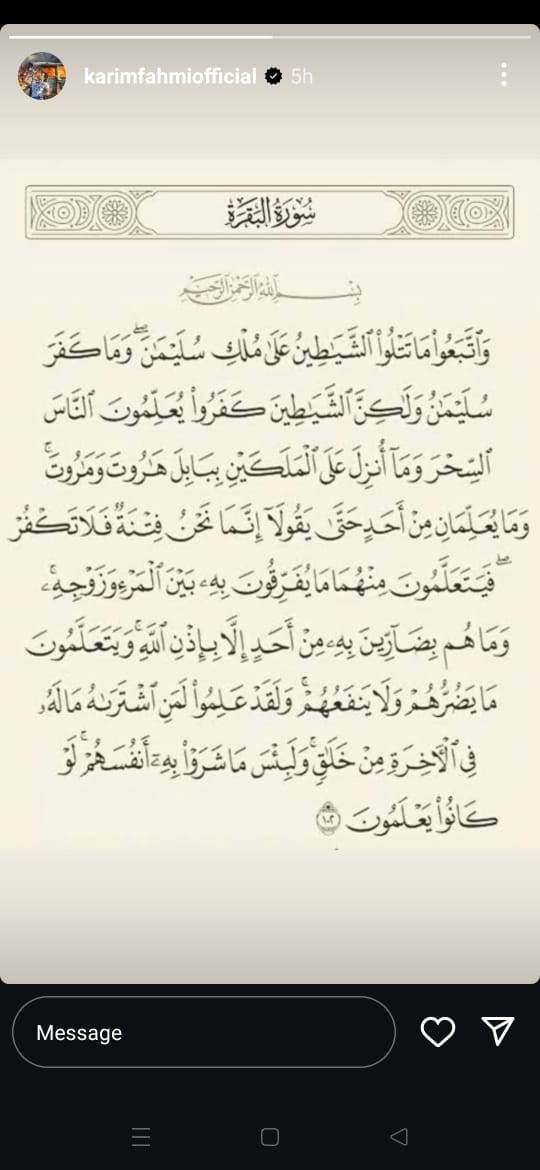 karimfahmiofficial 5h
سُورَةُ البَقَرَةِ
بِسْمِ اللَّهِ الرَّحْمَٰنِ الرَّحِيمِ
وَٱتَّبَعُوا۟ مَا تَتْلُوا۟ ٱلشَّيَٰطِينُ عَلَىٰ مُلْكِ سُلَيْمَٰنَ ۖ وَمَا كَفَرَ
سُلَيْمَٰنُ وَلَٰكِنَّ ٱلشَّيَٰطِينَ كَفَرُوا۟ يُعَلِّمُونَ ٱلنَّاسَ
ٱلسِّحْرَ وَمَآ أُنزِلَ عَلَى ٱلْمَلَكَيْنِ بِبَابِلَ هَٰرُوتَ وَمَٰرُوتَ ۚ
وَمَا يُعَلِّمَانِ مِنْ أَحَدٍ حَتَّىٰ يَقُولَآ إِنَّمَا نَحْنُ فِتْنَةٌ فَلَا تَكْفُرْ ۖ
فَيَتَعَلَّمُونَ مِنْهُمَا مَا يُفَرِّقُونَ بِهِۦ بَيْنَ ٱلْمَرْءِ وَزَوْجِهِۦ ۚ
وَمَا هُم بِضَآرِّينَ بِهِۦ مِنْ أَحَدٍ إِلَّا بِإِذْنِ ٱللَّهِ ۚ وَيَتَعَلَّمُونَ
مَا يَضُرُّهُمْ وَلَا يَنفَعُهُمْ ۚ وَلَقَدْ عَلِمُوا۟ لَمَنِ ٱشْتَرَىٰهُ مَا لَهُۥ
فِى ٱلْءَاخِرَةِ مِنْ خَلَٰقٍ ۚ وَلَبِئْسَ مَا شَرَوْا۟ بِهِۦٓ أَنفُسَهُمْ ۚ لَوْ
كَانُوا۟ يَعْلَمُونَ ١٠٢
Message